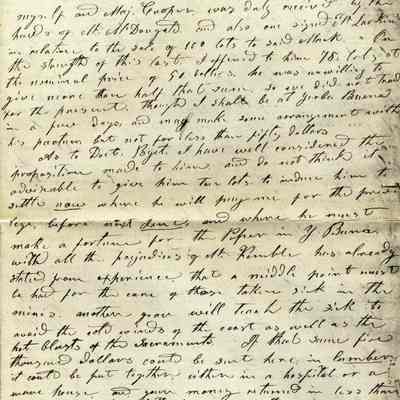 myself and Maj. Cooper was duly received by the
hands of Mr McDougald and also one signed
in relation to the sale of 100 lots to said Mark. &
the strength of this last I offered to him 75 lots at
the nominal price of 50 dollars. he was unwilling to
give more than half that sum, so we did not trade
for the present, though I shall be at Yerba Buena
in a few days, and may make some arrangement with
his partner but not for less than fifty dollars
As to Doct. I have well considered the
proposition made to him and do not think it
advisable to give him two lots to induce him to
settle now where he will pray me for the privi
lege, before next June, and where he must
make a fortune for the Paper in Y Buena
with all the prejudices of Mr Kemble has already
stated from experience that a middle point must
be had for the care of those taken sick in the
mines. another year will teach the sick to
avoid the cold winds of the coast as well as the
hot blasts of the Sacramento. If that same five
thousand dollars could be sent here, in lumber,
it could be put together either in a hospital or a
ware house and your money returned in less than